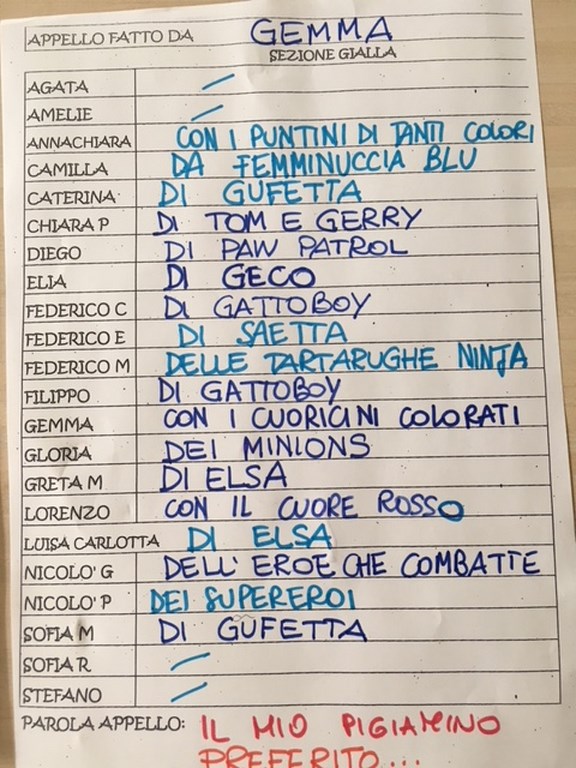 APPELLO FATTO DA GEMMA
SEZIONE GIALLA
AGATA
AMELIE
ANNACHIARA CON I PUNTINI DI TANTI COLORI
CAMILLA DA FEMMINUCCIA BLU
CATERINA DI GUFETTA
CHIARA P DI TOM E GERRY
DIEGO DI PAW PATROL
ELIA DI GECO
FEDERICO C DI GATTOBOY
FEDERICO E DI SAETTA
FEDERICO M DELLE TARTARUGHE NINJA
FILIPPO DI GATTOBOY
GEMMA CON I CUORICINI COLORATI
GLORIA DEI MINIONS
GRETA M DI ELSA
LORENZO CON IL CUORE ROSSO
LUISA CARLOTTA DI ELSA
NICOLO' G DELL' EROE CHE COMBATTE
NICOLO' P DEI SUPEREROI
SOFIA M DI GUFETTA
SOFIA R
STEFANO
PAROLA APPELLO: IL MIO PIGIAMINO
PREFERITO...